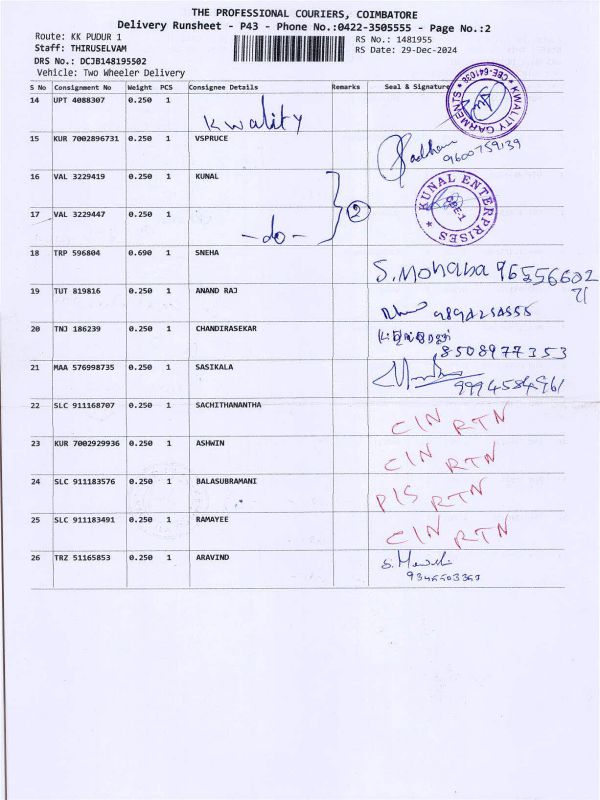 THE PROFESSIONAL COURIERS, COIMBATORE
Delivery Runsheet - P43 - Phone No.:0422-3505555 - Page No.:2
Route: KK PUDUR 1
Staff: THIRUSELVAM
DRS No.: DCJB148195502
Vehicle: Two Wheeler Delivery
RS No.: 1481955
RS Date: 29-Dec-2024
S No Consignment No Weight PCS Consignee Details Remarks Seal & Signature
14 UPT 4088307 0.250 1 Kwality
KWALITY GARMENTS * CBE-641038 *
15 KUR 7002896731 0.250 1 VSPRUCE
9600759139
16 VAL 3229419 0.250 1 KUNAL
2
KUNAL ENTERPRISES * CBE-1
17 VAL 3229447 0.250 1 -do-
18 TRP 596804 0.690 1 SNEHA S.Mohaba 96556602
71
19 TUT 819816 0.250 1 ANAND RAJ
20 TNJ 186239 0.250 1 CHANDIRASEKAR
8508977353
21 MAA 576998735 0.250 1 SASIKALA
9994584961
22 SLC 911168707 0.250 1 SACHITHANANTHA CIN RTN
23 KUR 7002929936 0.250 1 ASHWIN CIN RTN
24 SLC 911183576 0.250 1 BALASUBRAMANI PIS RTN
25 SLC 911183491 0.250 1 RAMAYEE CIN RTN
26 TRZ 51165853 0.250 1 ARAVIND